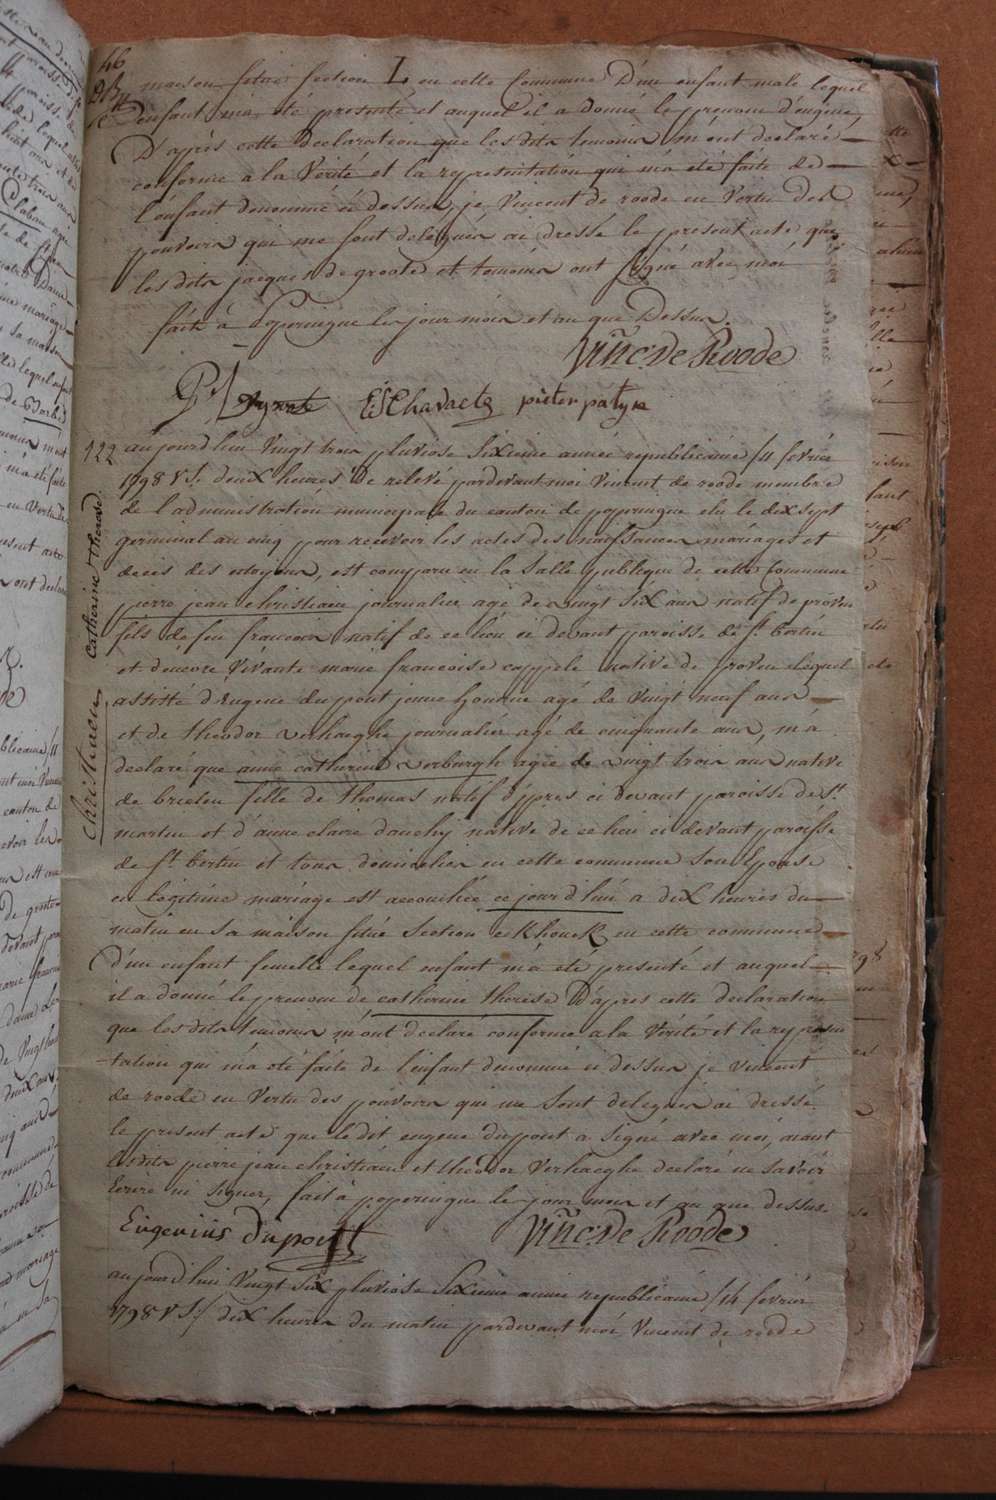 46
maison située section L en cette Commune D'un enfant male lequel
enfant m'a été presenté et auquel il a donné le prenom d'eugene,
D'après cette Declaration que les dits temoins m'ont declaré
conforme a la Verité et la representation qui m'a été faite de
l'enfant denommé ci dessus, je, Vincent de roode en Vertu des
pouvoirs qui me sont delegués ai dressé le present acte que
les dits jacques de groote et temoins ont signé avec moi
faite à poperingue les jour mois et an que Dessus.
Vinc: De Roode
pieter patyn
122
Christiaen Catharine Therese
aujourd'hui Vingt trois pluviose sixieme année republicaine /11 fevrier
1798 V S/. deux heures de relevé pardevant moi Vincent de roode membre
de l'administration municipale du canton de poperingue elu le dix sept
germinal an cinq pour recevoir les actes des naissances mariages et
deces des citoyens, est comparu en la salle publique de cette Commune
pierre jean christiaen journalier agé de vingt six ans natif de proven
fils de feu francois natif de ce lieu ci devant paroisse de St. bertin
et d'encore Vivante marie francoise cappele native de proven lequel
assisté d'eugene dupont jeune homme agé de vingt neuf ans
et de theodor verhaeghe journalier agé de cinquante ans, m'a
declaré que anne catherine verburgh agée de vingt trois ans native
de brielen fille de thomas natif d'ypres ci devant paroisse de St.
martin et d'anne claire dauchy native de ce lieu ci devant paroisse
de St. bertin et tous domiciliés en cette commune son Epouse
en legitime mariage est accouchée ce jour d'hui a dix heures du
matin en sa maison située section ekhouck en cette commune
D'un enfant femelle lequel enfant m'a été presenté et auquel
il a donné le prenom de catherine therese D'apres cette declaration
que les dits temoins m'ont declaré conforme a la Verité et la represen
tation qui m'a été faite de l'enfant denommé ci dessus je vincent
de roode en Vertu des pouvoirs qui me sont delegués ai dressé
le present acte que le dit eugene dupont a signé avec moi, aiant
les dits pierre jean christiaen et theodor Verhaeghe declaré ne savoir
Ecrire ni signer, fait à poperingue le jour mois et an que dessus.
Eugenius Dupont
Vinc: De Roode
aujourd'hui Vingt six pluviose sixieme année republicaine /14 fevrier
1798 V S./ dix heures du matin pardevant moi Vincent de roode